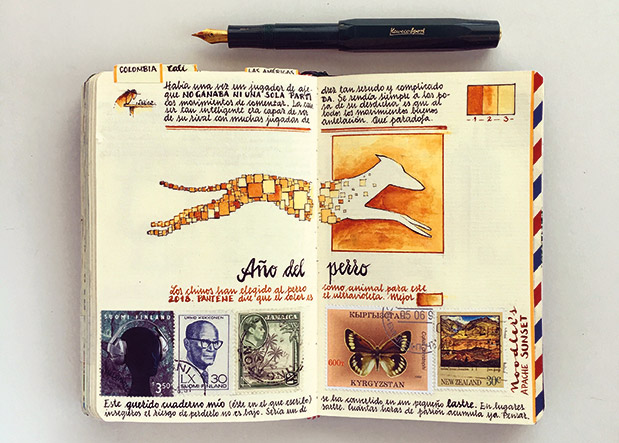 Kaweco Sport
COLOMBIA Cali LAS AMÉRICAS
Había una vez un jugador de aje
drez tan sesudo y complicado
que NO GANABA NI UNA SOLA PARTI
DA. Se rendía siempre a los po
cos movimientos de comenzar. La cau
sa de su desdicha es que al
ser tan inteligente era capaz de ver
todos los movimientos buenos
de su rival con muchas jugadas de
antelación. Qué paradoja.
- 1 - 2 - 3 -
Año del perro
Los chinos han elegido al perro
como animal para este
2018. PANTENE dice que el color es
el ultravioleta. Mejor
SUOMI FINLAND
3,50
URHO KEKKONEN
LX 30
SUOMI FINLAND
JAMAICA
КЫРГЫЗСТАН
600т
KYRGYZSTAN
05 06
NEW ZEALAND 30c
Noodler's
APACHE SUNSET
Este querido cuaderno mío (éste en el que escribo)
se ha convertido en un pequeño lastre. En lugares
inseguros el riesgo de perderlo no es bajo. Sería un de
sastre. Cuántas horas de pasión acumula ya. Pensar